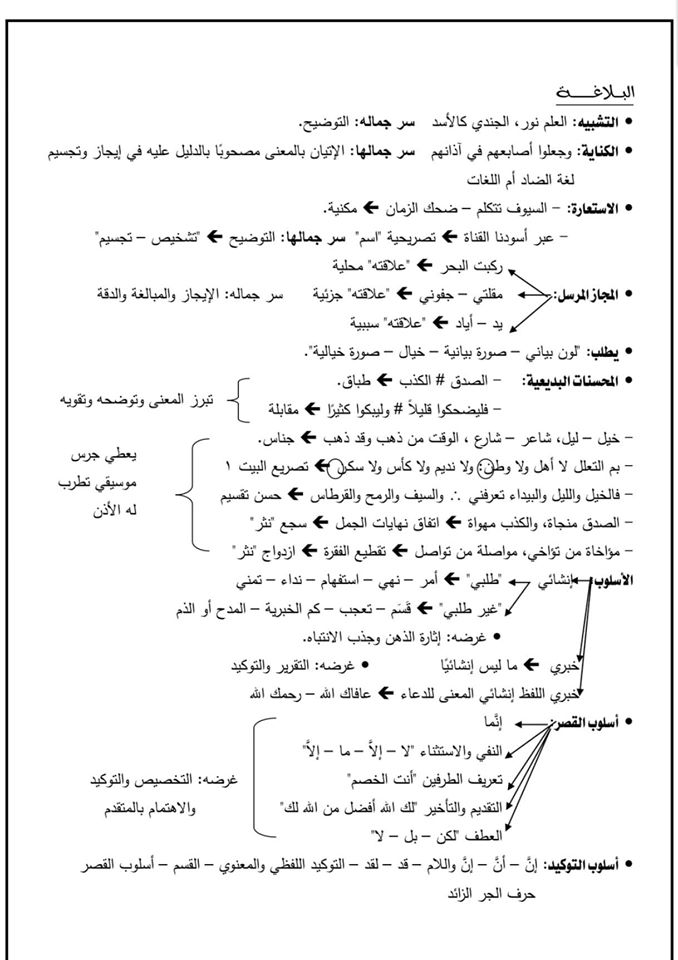 البلاغـــــة
• التشبيه: العلم نور، الجندي كالأسد سر جماله: التوضيح.
• الكناية: وجعلوا أصابعهم في آذانهم سر جمالها: الإتيان بالمعنى مصحوبًا بالدليل عليه في إيجاز وتجسيم
لغة الضاد أم اللغات
• الاستعارة: – السيوف تتكلم – ضحك الزمان ← مكنية.
– عبر أسودنا القناة ← تصريحية "اسم" سر جمالها: التوضيح ← "تشخيص – تجسيم"
ركبت البحر ← "علاقته" محلية
• المجاز المرسل: مقلتي – جفوني ← "علاقته" جزئية سر جماله: الإيجاز والمبالغة والدقة
يد – أياد ← "علاقته" سببية
• يطلب: "لون بياني – صورة بيانية – خيال – صورة خيالية".
• المحسنات البديعية: – الصدق # الكذب ← طباق.
تبرز المعنى وتوضحه وتقويه
– فليضحكوا قليلاً # وليبكوا كثيرًا ← مقابلة
– خيل – ليل، شاعر – شارع ، الوقت من ذهب وقد ذهب ← جناس.
– بم التعلل لا أهل ولا وطن: ولا نديم ولا كأس ولا سكن ← تصريع البيت ١
– فالخيل والليل والبيداء تعرفني ∴ والسيف والرمح والقرطاس ← حسن تقسيم
– الصدق منجاة، والكذب مهواة ← اتفاق نهايات الجمل ← سجع "نثر"
– مؤاخاة من تؤاخي، مواصلة من تواصل ← تقطيع الفقرة ← ازدواج "نثر"
يعطي جرس
موسيقي تطرب
له الأذن
الأسلوب: إنشائي "طلبي" ← أمر – نهي – استفهام – نداء – تمني
"غير طلبي" ← قَسَم – تعجب – كم الخبرية – المدح أو الذم
• غرضه: إثارة الذهن وجذب الانتباه.
خبري ← ما ليس إنشائيًا • غرضه: التقرير والتوكيد
خبري اللفظ إنشائي المعنى للدعاء ← عافاك الله – رحمك الله
• أسلوب القصر: إنَّما
النفي والاستثناء "لا – إلاَّ – ما – إلاَّ"
تعريف الطرفين "أنت الخصم"
التقديم والتأخير "لك الله أفضل من الله لك"
العطف "لكن – بل – لا"
غرضه: التخصيص والتوكيد
والاهتمام بالمتقدم
• أسلوب التوكيد: إنَّ – أنَّ – إنَّ واللام – قد – لقد – التوكيد اللفظي والمعنوي – القسم – أسلوب القصر
حرف الجر الزائد